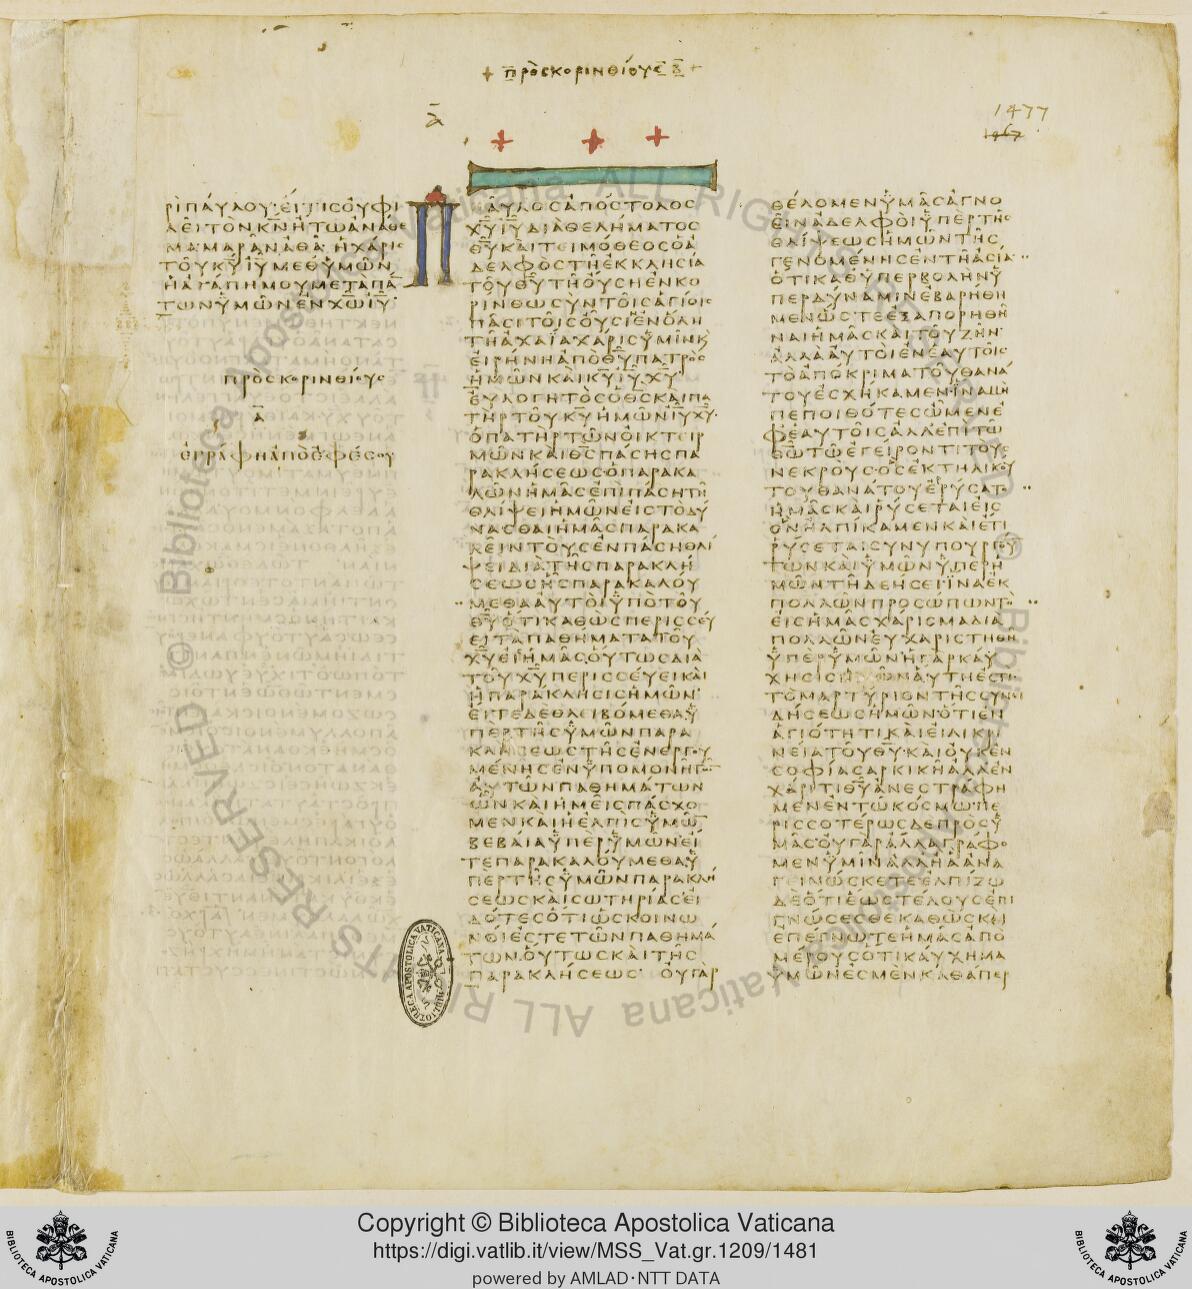 + ΠΡΟϹΚΟΡΙΝΘΙΟΥϹ Β̅ +
Α̅
1477
1467
ΡΙΠΑΥΛΟΥ·ΕΙΤΙϹΟΥΦΙ
ΛΕΙΤΟΝΚ̅Ν̅ΗΤΩΑΝΑΘΕ
ΜΑΜΑΡΑΝΑΘΑ·ΗΧΑΡΙϹ
ΤΟΥΚ̅Υ̅Ι̅Υ̅ΜΕΘΥΜΩΝ
ΗΑΓΑΠΗΜΟΥΜΕΤΑΠΑ̅
ΤΩΝΥΜΩΝΕΝΧ̅Ω̅Ι̅Υ̅·
ΠΡΟϹΚΟΡΙΝΘΙΟΥϹ
Α̅
ΕΓΡΑΦΗΑΠΟΕΦΕϹΟΥ
ΠΑΥΛΟϹΑΠΟϹΤΟΛΟϹ
Χ̅Υ̅Ι̅Υ̅ΔΙΑΘΕΛΗΜΑΤΟϹ
Θ̅Υ̅ΚΑΙΤΕΙΜΟΘΕΟϹΟΑ
ΔΕΛΦΟϹΤΗΕΚΚΛΗϹΙΑ
ΤΟΥΘ̅Υ̅ΤΗΟΥϹΗΕΝΚΟ
ΡΙΝΘΩϹΥΝΤΟΙϹΑΓΙΟΙϹ
ΠΑϹΙΤΟΙϹΟΥϹΙΕΝΟΛΗ
ΤΗΑΧΑΙΑΧΑΡΙϹΥΜΙΝΚ
ΕΙΡΗΝΗΑΠΟΘ̅Υ̅ΠΑΤΡΟϹ
ΗΜΩΝΚΑΙΚ̅Υ̅Ι̅Υ̅Χ̅Υ̅
ΕΥΛΟΓΗΤΟϹΟΘ̅Ϲ̅ΚΑΙΠΑ
ΤΗΡΤΟΥΚ̅Υ̅ΗΜΩΝΙ̅Υ̅Χ̅Υ̅·
ΟΠΑΤΗΡΤΩΝΟΙΚΤΕΙΡ
ΜΩΝΚΑΙΘ̅Ϲ̅ΠΑϹΗϹΠΑ
ΡΑΚΛΗϹΕΩϹ·ΟΠΑΡΑΚΑ
ΛΩΝΗΜΑϹΕΠΙΠΑϹΗΤΗ
ΘΛΙΨΕΙΗΜΩΝΕΙϹΤΟΔΥ
ΝΑϹΘΑΙΗΜΑϹΠΑΡΑΚΑ
ΛΕΙΝΤΟΥϹΕΝΠΑϹΗΘΛΙ
ΨΕΙΔΙΑΤΗϹΠΑΡΑΚΛΗ
ϹΕΩϹΗϹΠΑΡΑΚΑΛΟΥ
ΜΕΘΑΑΥΤΟΙΥΠΟΤΟΥ
Θ̅Υ̅ΟΤΙΚΑΘΩϹΠΕΡΙϹϹΕΥ
ΕΙΤΑΠΑΘΗΜΑΤΑΤΟΥ
Χ̅Υ̅ΕΙϹΗΜΑϹ·ΟΥΤΩϹΔΙΑ
ΤΟΥΧ̅Υ̅ΠΕΡΙϹϹΕΥΕΙΚΑΙ
ΗΠΑΡΑΚΛΗϹΙϹΗΜΩΝ·
ΕΙΤΕΔΕΘΛΕΙΒΟΜΕΘΑΥ
ΠΕΡΤΗϹΥΜΩΝΠΑΡΑ
ΚΛΗϹΕΩϹΤΗϹΕΝΕΡΓΟΥ
ΜΕΝΗϹΕΝΥΠΟΜΟΝΗΤ̅
ΑΥΤΩΝΠΑΘΗΜΑΤΩΝ
ΩΝΚΑΙΗΜΕΙϹΠΑϹΧΟ
ΜΕΝΚΑΙΗΕΛΠΙϹΥΜΩ̅
ΒΕΒΑΙΑΥΠΕΡΥΜΩΝΕΙ
ΤΕΠΑΡΑΚΑΛΟΥΜΕΘΑΥ
ΠΕΡΤΗϹΥΜΩΝΠΑΡΑΚΛΗ
ϹΕΩϹΚΑΙϹΩΤΗΡΙΑϹ·ΕΙ
ΔΟΤΕϹΟΤΙΩϹΚΟΙΝΩ
ΝΟΙΕϹΤΕΤΩΝΠΑΘΗΜΑ
ΤΩΝ·ΟΥΤΩϹΚΑΙΤΗϹ
ΠΑΡΑΚΛΗϹΕΩϹ· ΟΥΓΑΡ
ΘΕΛΟΜΕΝΥΜΑϹΑΓΝΟ
ΕΙΝΑΔΕΛΦΟΙΥΠΕΡΤΗϹ
ΘΛΙΨΕΩϹΗΜΩΝΤΗϹ
ΓΕΝΟΜΕΝΗϹΕΝΤΗΑϹΙΑ·
ΟΤΙΚΑΘΥΠΕΡΒΟΛΗΝΥ
ΠΕΡΔΥΝΑΜΙΝΕΒΑΡΗΘΗ
ΜΕΝΩϹΤΕΕΞΑΠΟΡΗΘΗ
ΝΑΙΗΜΑϹΚΑΙΤΟΥΖΗΝ·
ΑΛΛΑΑΥΤΟΙΕΝΕΑΥΤΟΙϹ
ΤΟΑΠΟΚΡΙΜΑΤΟΥΘΑΝΑ
ΤΟΥΕϹΧΗΚΑΜΕΝΙΝΑΜΗ
ΠΕΠΟΙΘΟΤΕϹΩΜΕΝΕ
ΦΕΑΥΤΟΙϹΑΛΛΕΠΙΤΩ
Θ̅Ω̅ΤΩΕΓΕΙΡΟΝΤΙΤΟΥϹ
ΝΕΚΡΟΥϹ·ΟϹΕΚΤΗΛΙΚΟΥ
ΤΟΥΘΑΝΑΤΟΥΕΡΥϹΑΤ·
ΗΜΑϹΚΑΙΡΥϹΕΤΑΙΕΙϹ
ΟΝΗΛΠΙΚΑΜΕΝΚΑΙΕΤΙ
ΡΥϹΕΤΑΙϹΥΝΥΠΟΥΡΓΟΥ̅
ΤΩΝΚΑΙΥΜΩΝΥΠΕΡΗ
ΜΩΝΤΗΔΕΗϹΕΙΙΝΑΕΚ
ΠΟΛΛΩΝΠΡΟϹΩΠΩΝΤΟ
ΕΙϹΗΜΑϹΧΑΡΙϹΜΑΔΙΑ
ΠΟΛΛΩΝΕΥΧΑΡΙϹΤΗΘΗ
ΥΠΕΡΥΜΩΝΗΓΑΡΚΑΥ
ΧΗϹΙϹΗΜΩΝΑΥΤΗΕϹΤΙ·
ΤΟΜΑΡΤΥΡΙΟΝΤΗϹϹΥΝΙ
ΔΗϹΕΩϹΗΜΩΝΟΤΙΕΝ
ΑΓΙΟΤΗΤΙΚΑΙΕΙΛΙΚΡΙ
ΝΕΙΑΤΟΥΘ̅Υ̅·ΚΑΙΟΥΚΕΝ
ϹΟΦΙΑϹΑΡΚΙΚΗΑΛΛΕΝ
ΧΑΡΙΤΙΘ̅Υ̅ΑΝΕϹΤΡΑΦΗ
ΜΕΝΕΝΤΩΚΟϹΜΩ·ΠΕ
ΡΙϹϹΟΤΕΡΩϹΔΕΠΡΟϹΥ
ΜΑϹ·ΟΥΓΑΡΑΛΛΑΓΡΑΦΟ
ΜΕΝΥΜΙΝΑΛΛΗΑΑΝΑ
ΓΕΙΝΩϹΚΕΤΕΕΛΠΙΖΩ
ΔΕΟΤΙΕΩϹΤΕΛΟΥϹΕΠΙ
ΓΝΩϹΕϹΘΕΚΑΘΩϹΚΑΙ
ΕΠΕΓΝΩΤΕΗΜΑϹΑΠΟ
ΜΕΡΟΥϹΟΤΙΚΑΥΧΗΜΑ
ΥΜΩΝΕϹΜΕΝΚΑΘΑΠΕΡ
BIBLIOTECA APOSTOLICA VATICANA
© Biblioteca Apostolica Vaticana ALL RIGHTS RESERVED
Copyright © Biblioteca Apostolica Vaticana
https://digi.vatlib.it/view/MSS_Vat.gr.1209/1481
powered by AMLAD·NTT DATA
BIBLIOTECA APOSTOLICA VATICANA
BIBLIOTECA APOSTOLICA VATICANA